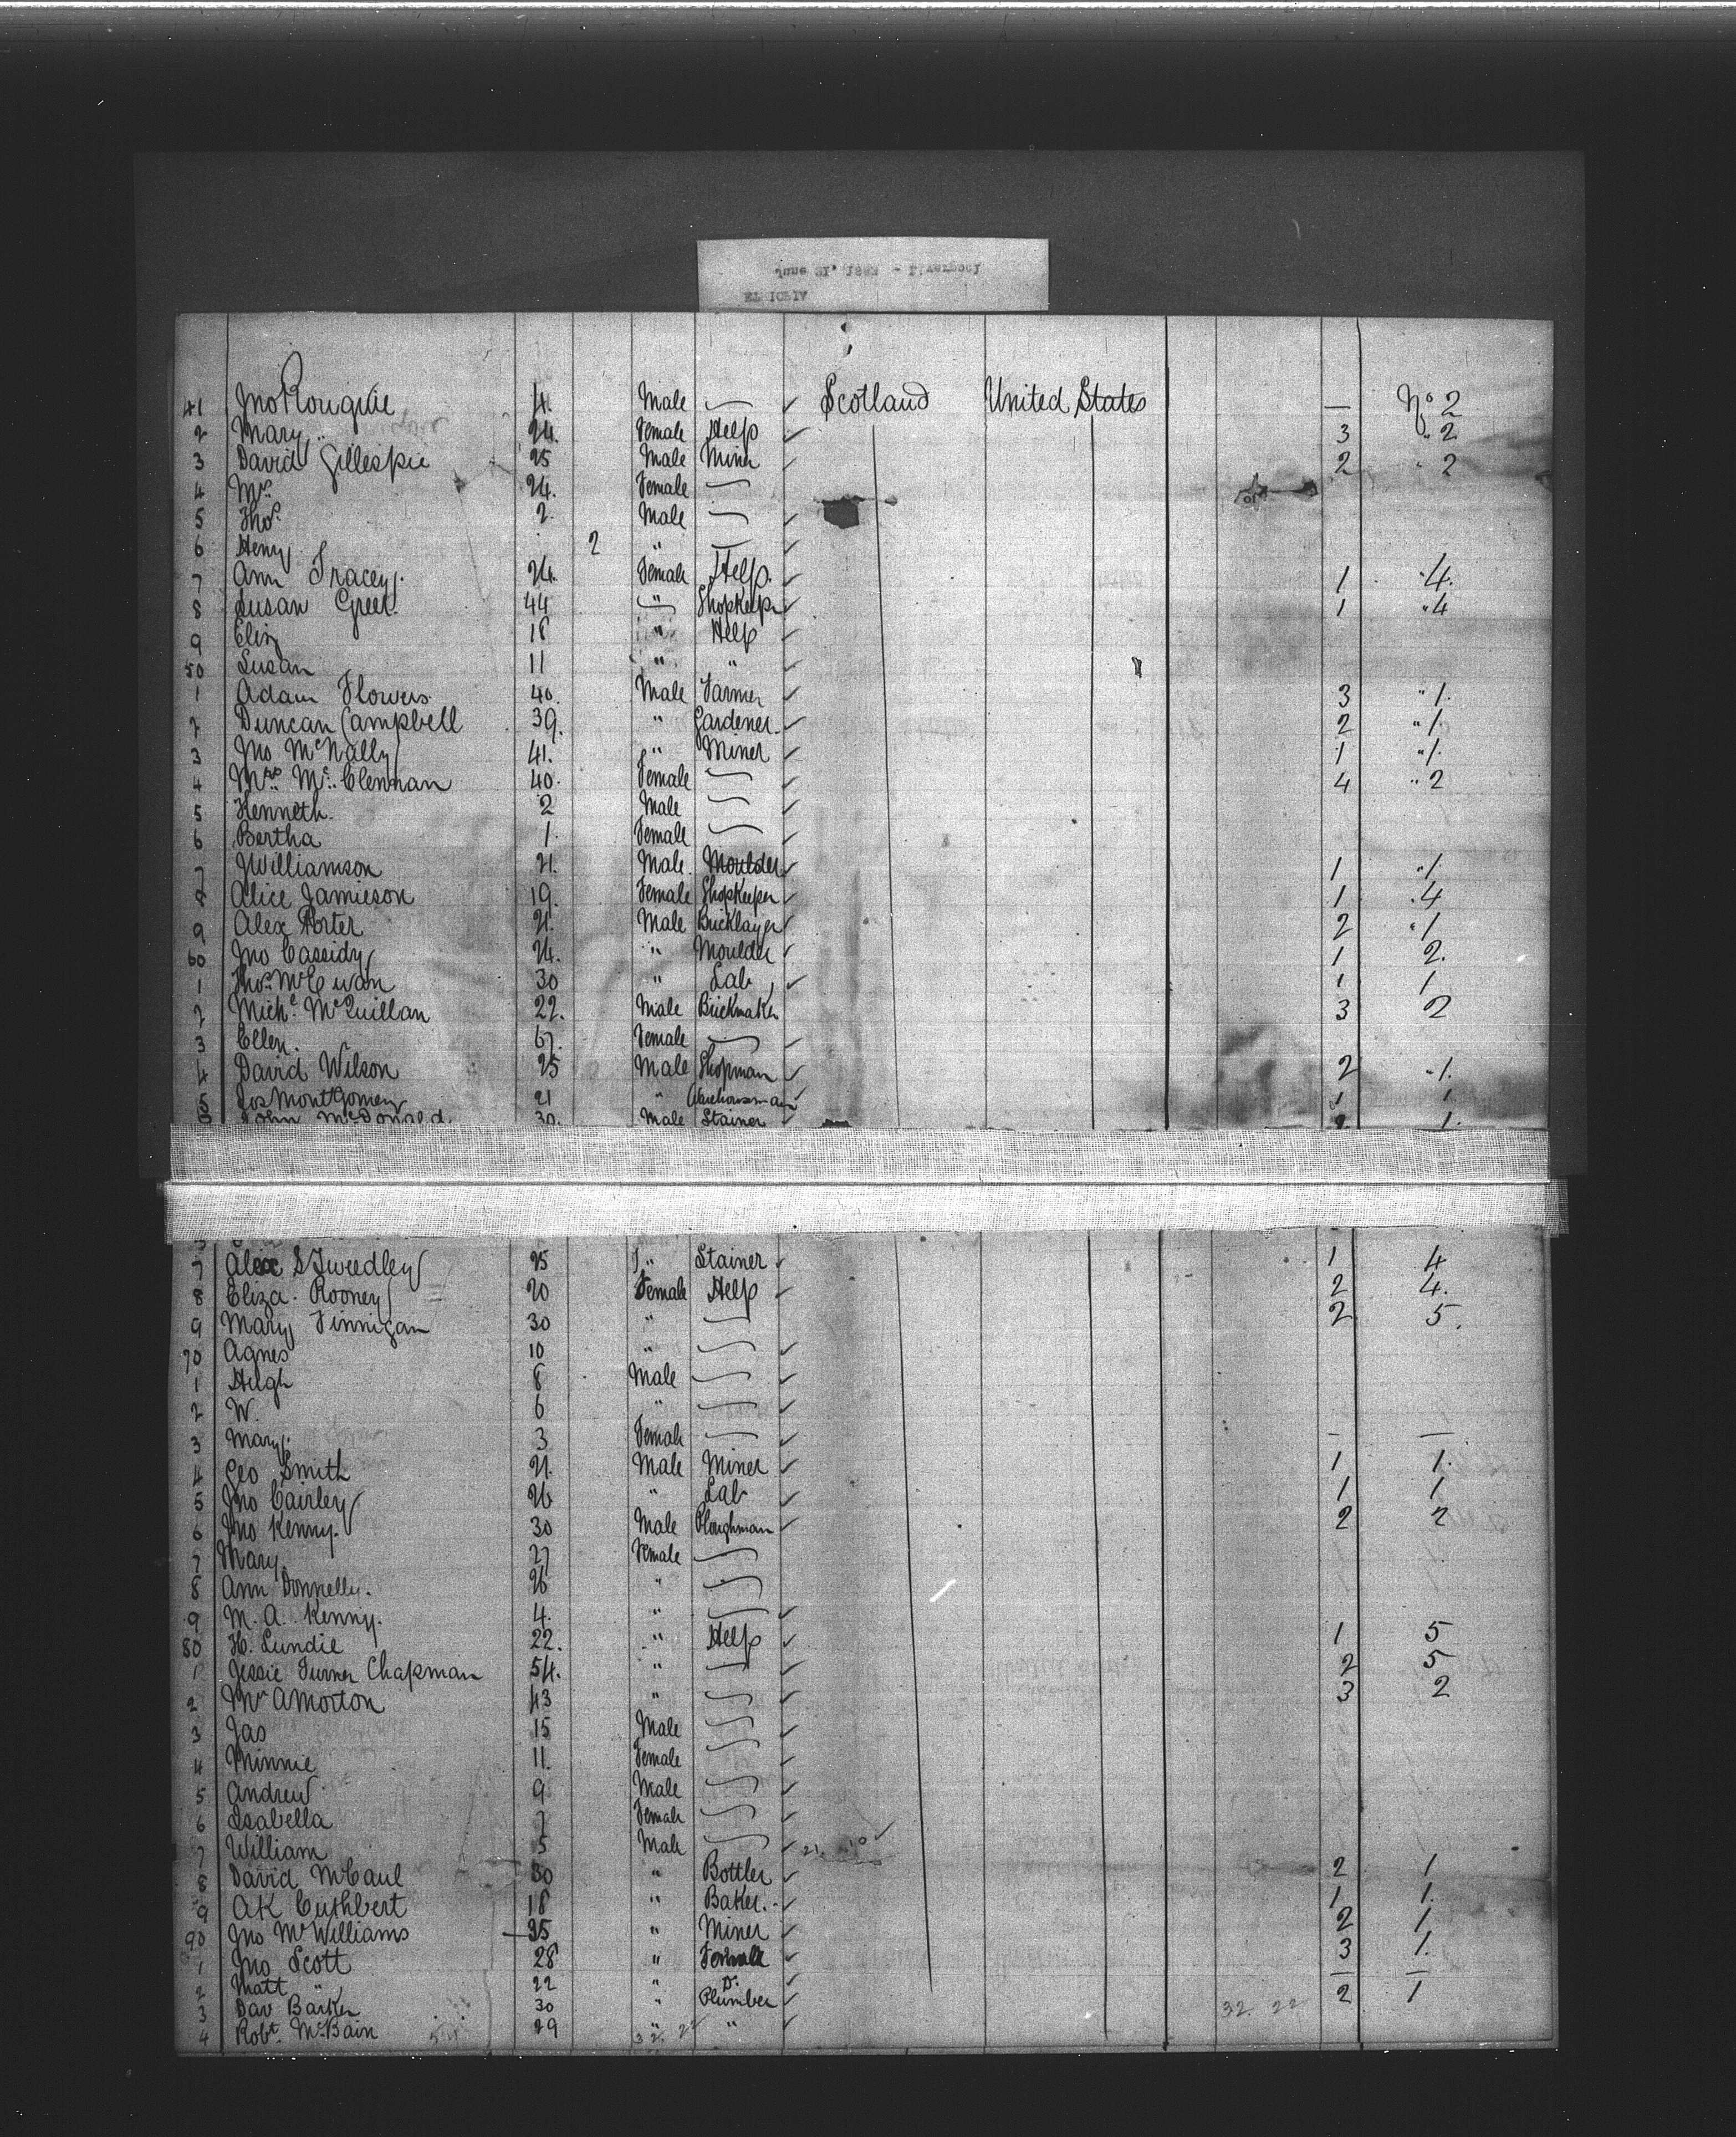 41 Jno Rougvie 4. Male — Scotland United States — No 2
2 Mary „ 24. Female Help 3 „ 2
3 David Gillespie 25 Male Miner 2 „ 2
4 Mrs 24. Female —
5 Thos 2. Male —
6 Henry 2 „ —
7 Ann Tracey. 24. Female Help. 1 „ 4.
8 Susan Greer. 44 „ Shopkeeper 1 „ 4
9 Eliz 18 „ Help
50 Susan 11 „ „
1 Adam Flowers. 40. Male Farmer 3 „ 1.
2 Duncan Campbell 39. „ Gardener. 2 „ 1.
3 Jno McNally 41. „ Miner 1 „ 1.
4 Mrs Mc Clennan 40. Female — 4 „ 2
5 Kenneth. 2 Male —
6 Bertha 1. Female —
7 J Williamson 21. Male. Moulder 1 „ 1
8 Alice Jamieson 19. Female Shopkeeper 1 „ 4
9 Alex Porter 21. Male Bricklayer 2 „ 1
60 Jno Cassidy 24. „ Moulder 1 2.
1 Thos McEwan 30 „ Lab 1 1
2 Michl McQuillan 22. Male Brickmaker 3 2
3 Ellen. 67. Female —
4 David Wilson 25 Male Shopman 2 „ 1.
5 Jos Montgomery 21 „ Warehouseman 1 1
6 John McDonald. 30. Male Stainer 2 1.
7 Alex S Tweedley 25 „ Stainer 1 4
8 Eliza. Rooney 20 Female Help 2 4.
9 Mary Finnigan 30 „ — 2 5.
70 Agnes 10 „ —
1 Hugh 8 Male —
2 W. 6 „ —
3 Mary. 3 Female — — —
4 Geo Smith 21. Male Miner 1 1.
5 Jno Cairley 26 „ Lab 1 1
6 Jno Kenny. 30 Male Ploughman 2 2
7 Mary. 27 Female —
8 Ann Donnelly. 26 „ —
9 M. A. Kenny. 4. „ —
80 H. Lundie 22. „ Help 1 5
1 Jessie Turner Chapman 54. „ — 2 5
2 Mrs A Morton 43 „ — 3 2
3 Jas 15 Male —
4 Minnie 11. Female —
5 Andrew 9 Male —
6 Isabella 7 Female —
7 William 5 Male —
8 David McCaul 30 „ Bottler 2 1
9 A K Cuthbert 18 „ Baker. 1 1.
90 Jno McWilliams 35 „ Miner 2 1.
1 Jno Scott 28 „ 3 1.
2 Matt „ 22 „ Do. — —
3 Dav Barker 30 „ Plumber 2 1
4 Robt. McBain 29 „ „
32. 22